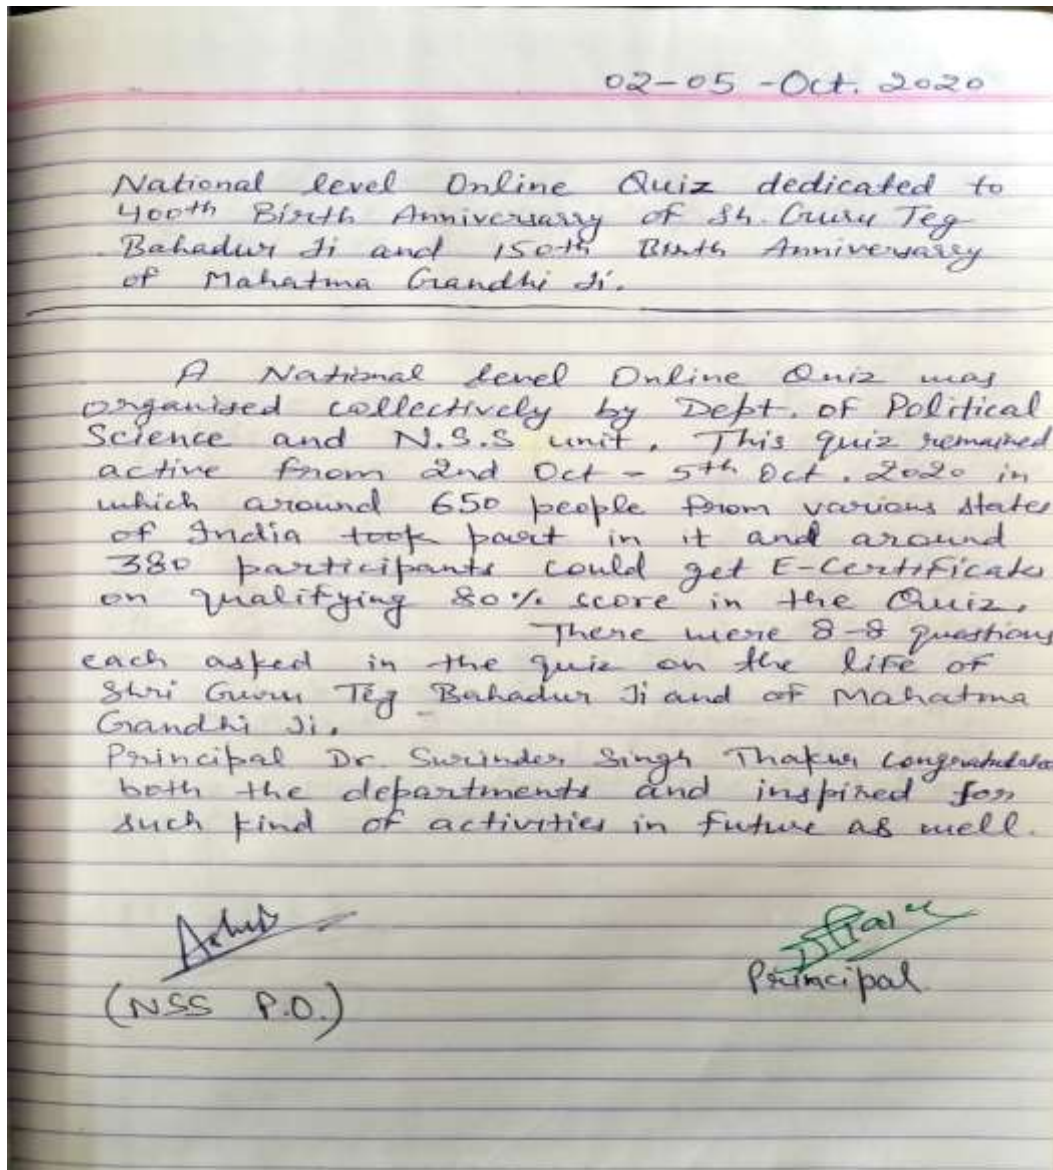 02-05-Oct. 2020
National level Online Quiz dedicated to
400th Birth Anniversarry of Sh. Guru Teg
Bahadur Ji and 150th Birth Anniversarry
of Mahatma Grandhi Ji.
A National level Online Quiz was
organised collectively by Dept. of Political
Science and N.S.S unit. This quiz remained
active from 2nd Oct - 5th Oct. 2020 in
which around 650 people from various states
of India took part in it and around
380 participants could get E-Certificates
on qualifying 80% score in the Quiz.
There were 8-8 questions
each asked in the quiz on the life of
Shri Guru Teg Bahadur Ji and of Mahatma
Grandhi Ji.
Principal Dr. Surinder Singh Thakur congratulates
both the departments and inspired for
such kind of activities in future as well.
(NSS P.O.)
Principal